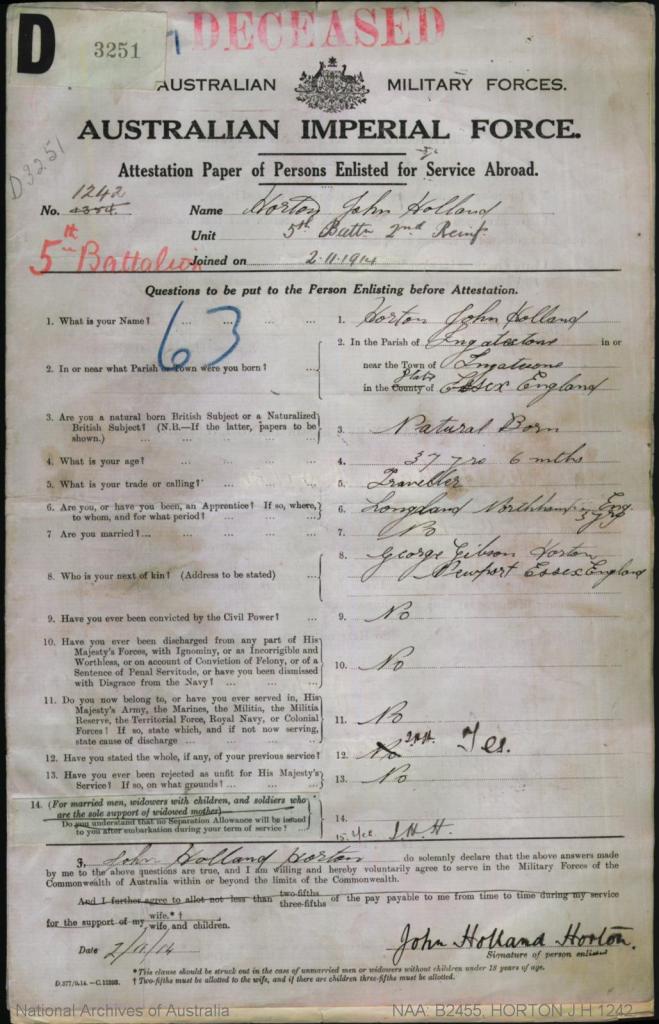 DECEASED
D
3251
D3251
AUSTRALIAN MILITARY FORCES.
AUSTRALIAN IMPERIAL FORCE.
Attestation Paper of Persons Enlisted for Service Abroad.
1242
No. Name Horton John Holland
Unit 5th Battn 2nd Reinf.
5th Battalion
Joined on 2.11.1914
Questions to be put to the Person Enlisting before Attestation.
63
1. What is your Name? ... ... ... ... 1. Horton John Holland
2. In or near what Parish or Town were you born? ... 2. In the Parish of Ingatestone in or
near the Town of Ingatestone
in the County of Essex England
3. Are you a natural born British Subject or a Naturalized
British Subject? (N.B.—If the latter, papers to be
shown.) ... ... ... ... 3. Natural Born
4. What is your age? ... ... ... ... 4. 37 yrs 6 mths
5. What is your trade or calling? ... ... ... 5. Traveller
6. Are you, or have you been, an Apprentice? If so, where,
to whom, and for what period? ... ... ... 6. Longland Eng
7 Are you married?... ... ... ... 7. No
8. Who is your next of kin? (Address to be stated) ... 8. George Gibson Horton
Newport Essex England
9. Have you ever been convicted by the Civil Power? ... 9. No
10. Have you ever been discharged from any part of His
Majesty's Forces, with Ignominy, or as Incorrigible and
Worthless, or on account of Conviction of Felony, or of a
Sentence of Penal Servitude, or have you been dismissed
with Disgrace from the Navy? ... ... ... 10. No
11. Do you now belong to, or have you ever served in, His
Majesty's Army, the Marines, the Militia, the Militia
Reserve, the Territorial Force, Royal Navy, or Colonial
Forces? If so, state which, and if not now serving,
state cause of discharge ... ... ... 11. No
12. Have you stated the whole, if any, of your previous service? 12. No J.H.H. Yes.
13. Have you ever been rejected as unfit for His Majesty's
Service? If so, on what grounds? ... ... 13. No
14. (For married men, widowers with children, and soldiers who
are the sole support of widowed mother)—
Do you understand that no Separation Allowance will be issued
to you after embarkation during your term of service? ... 14.
15. J.H.H.
I, John Holland Horton do solemnly declare that the above answers made
by me to the above questions are true, and I am willing and hereby voluntarily agree to serve in the Military Forces of the
Commonwealth of Australia within or beyond the limits of the Commonwealth.
And I further agree to allot not less than two-fifths three-fifths of the pay payable to me from time to time during my service
for the support of my wife.* † wife, and children.
Date 2/11/14 John Holland Horton.
Signature of person enlisted
*This clause should be struck out in the case of unmarried men or widowers without children under 18 years of age.
† Two-fifths must be allotted to the wife, and if there are children three-fifths must be allotted.
National Archives of Australia NAA: B2455, HORTON J H 1242